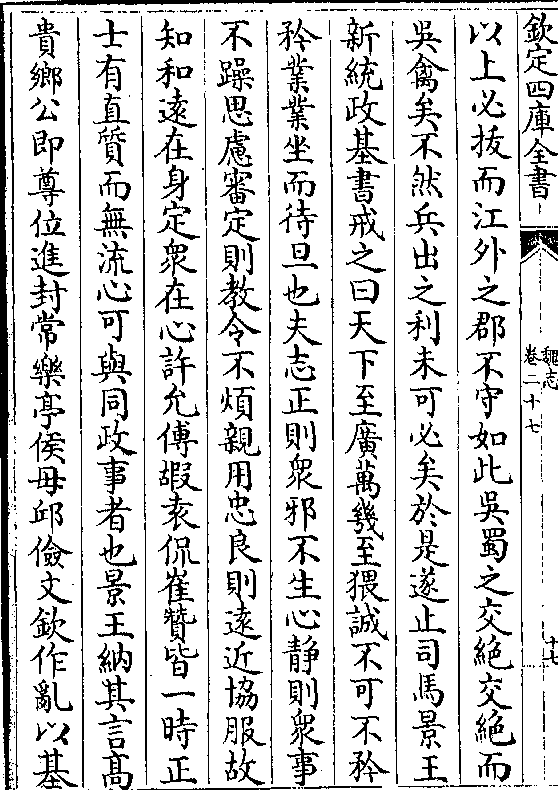 欽定四庫全書
魏志
卷二十七
十七
以上必拔而江外之郡不守如此吳蜀之交絶交絶而
吳禽矣不然兵出之利未可必矣於是遂止司馬景王
新統政基書戒之曰天下至廣萬幾至猥誠不可不矜
矜業業坐而待旦也夫志正則衆邪不生心静則衆事
不躁思慮審定則教令不煩親用忠良則遠近協服故
知和遠在身定衆在心許允傅嘏袁侃崔贊皆一時正
士有直質而無流心可與同政事者也景王納其言髙
貴鄉公即尊位進封常樂亭侯毋邱儉文欽作亂以基